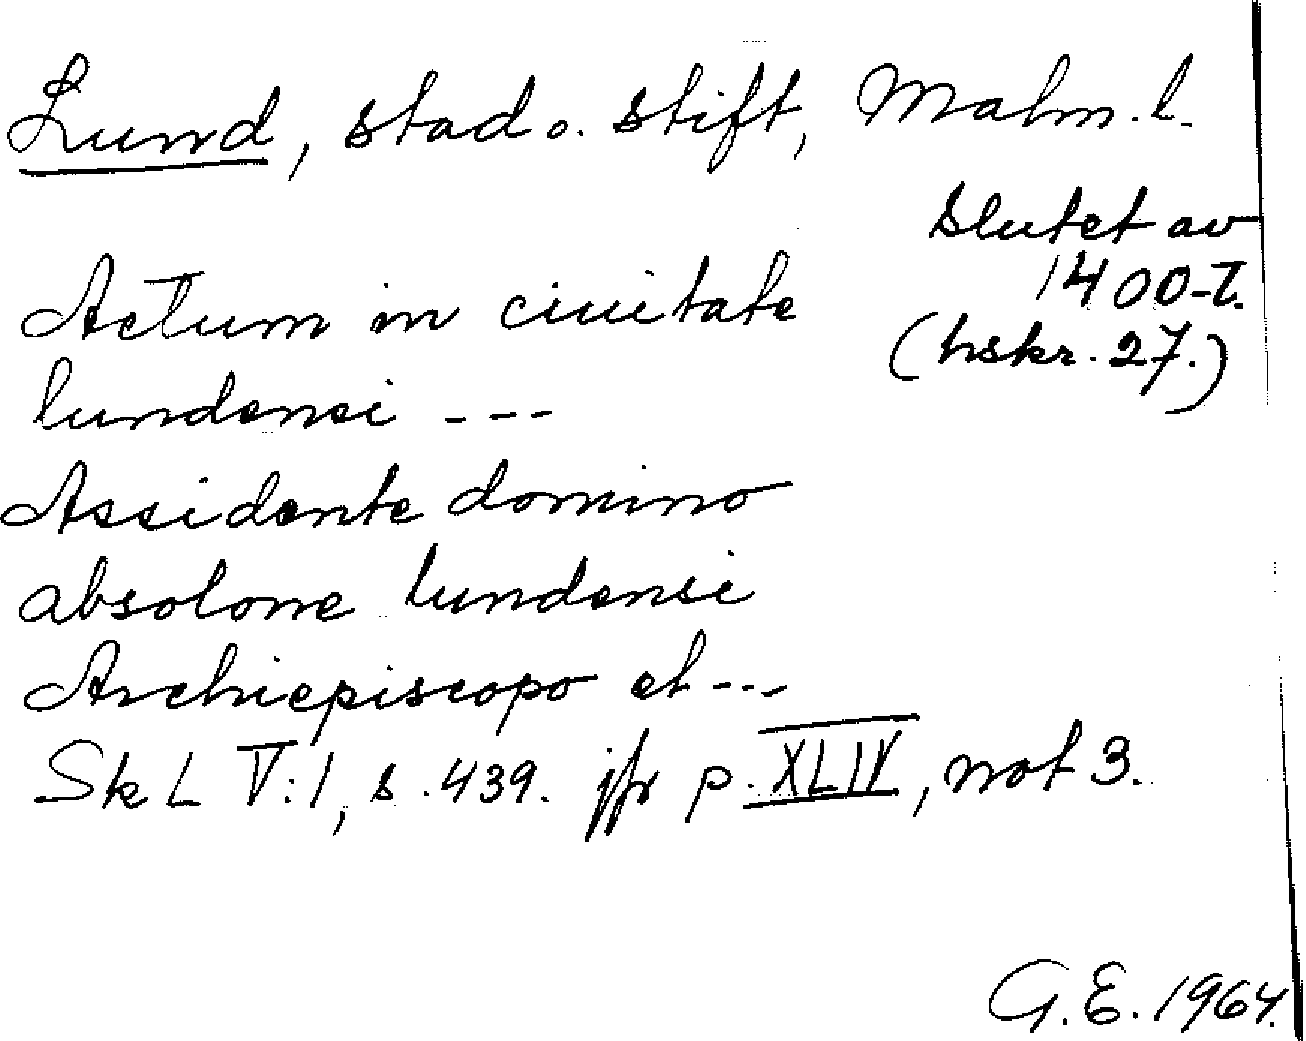 Lund, stad o. stift, Malm. l.
Slutet av
1400-t.
(hskr. 27.)
Actum in ciuitate
lundensi ---
Assidente domino
absolone lundensi
Archiepiscopo et ---
Sk L V:1, s. 439. jfr p. XLIV, not 3.
G.E. 1964.